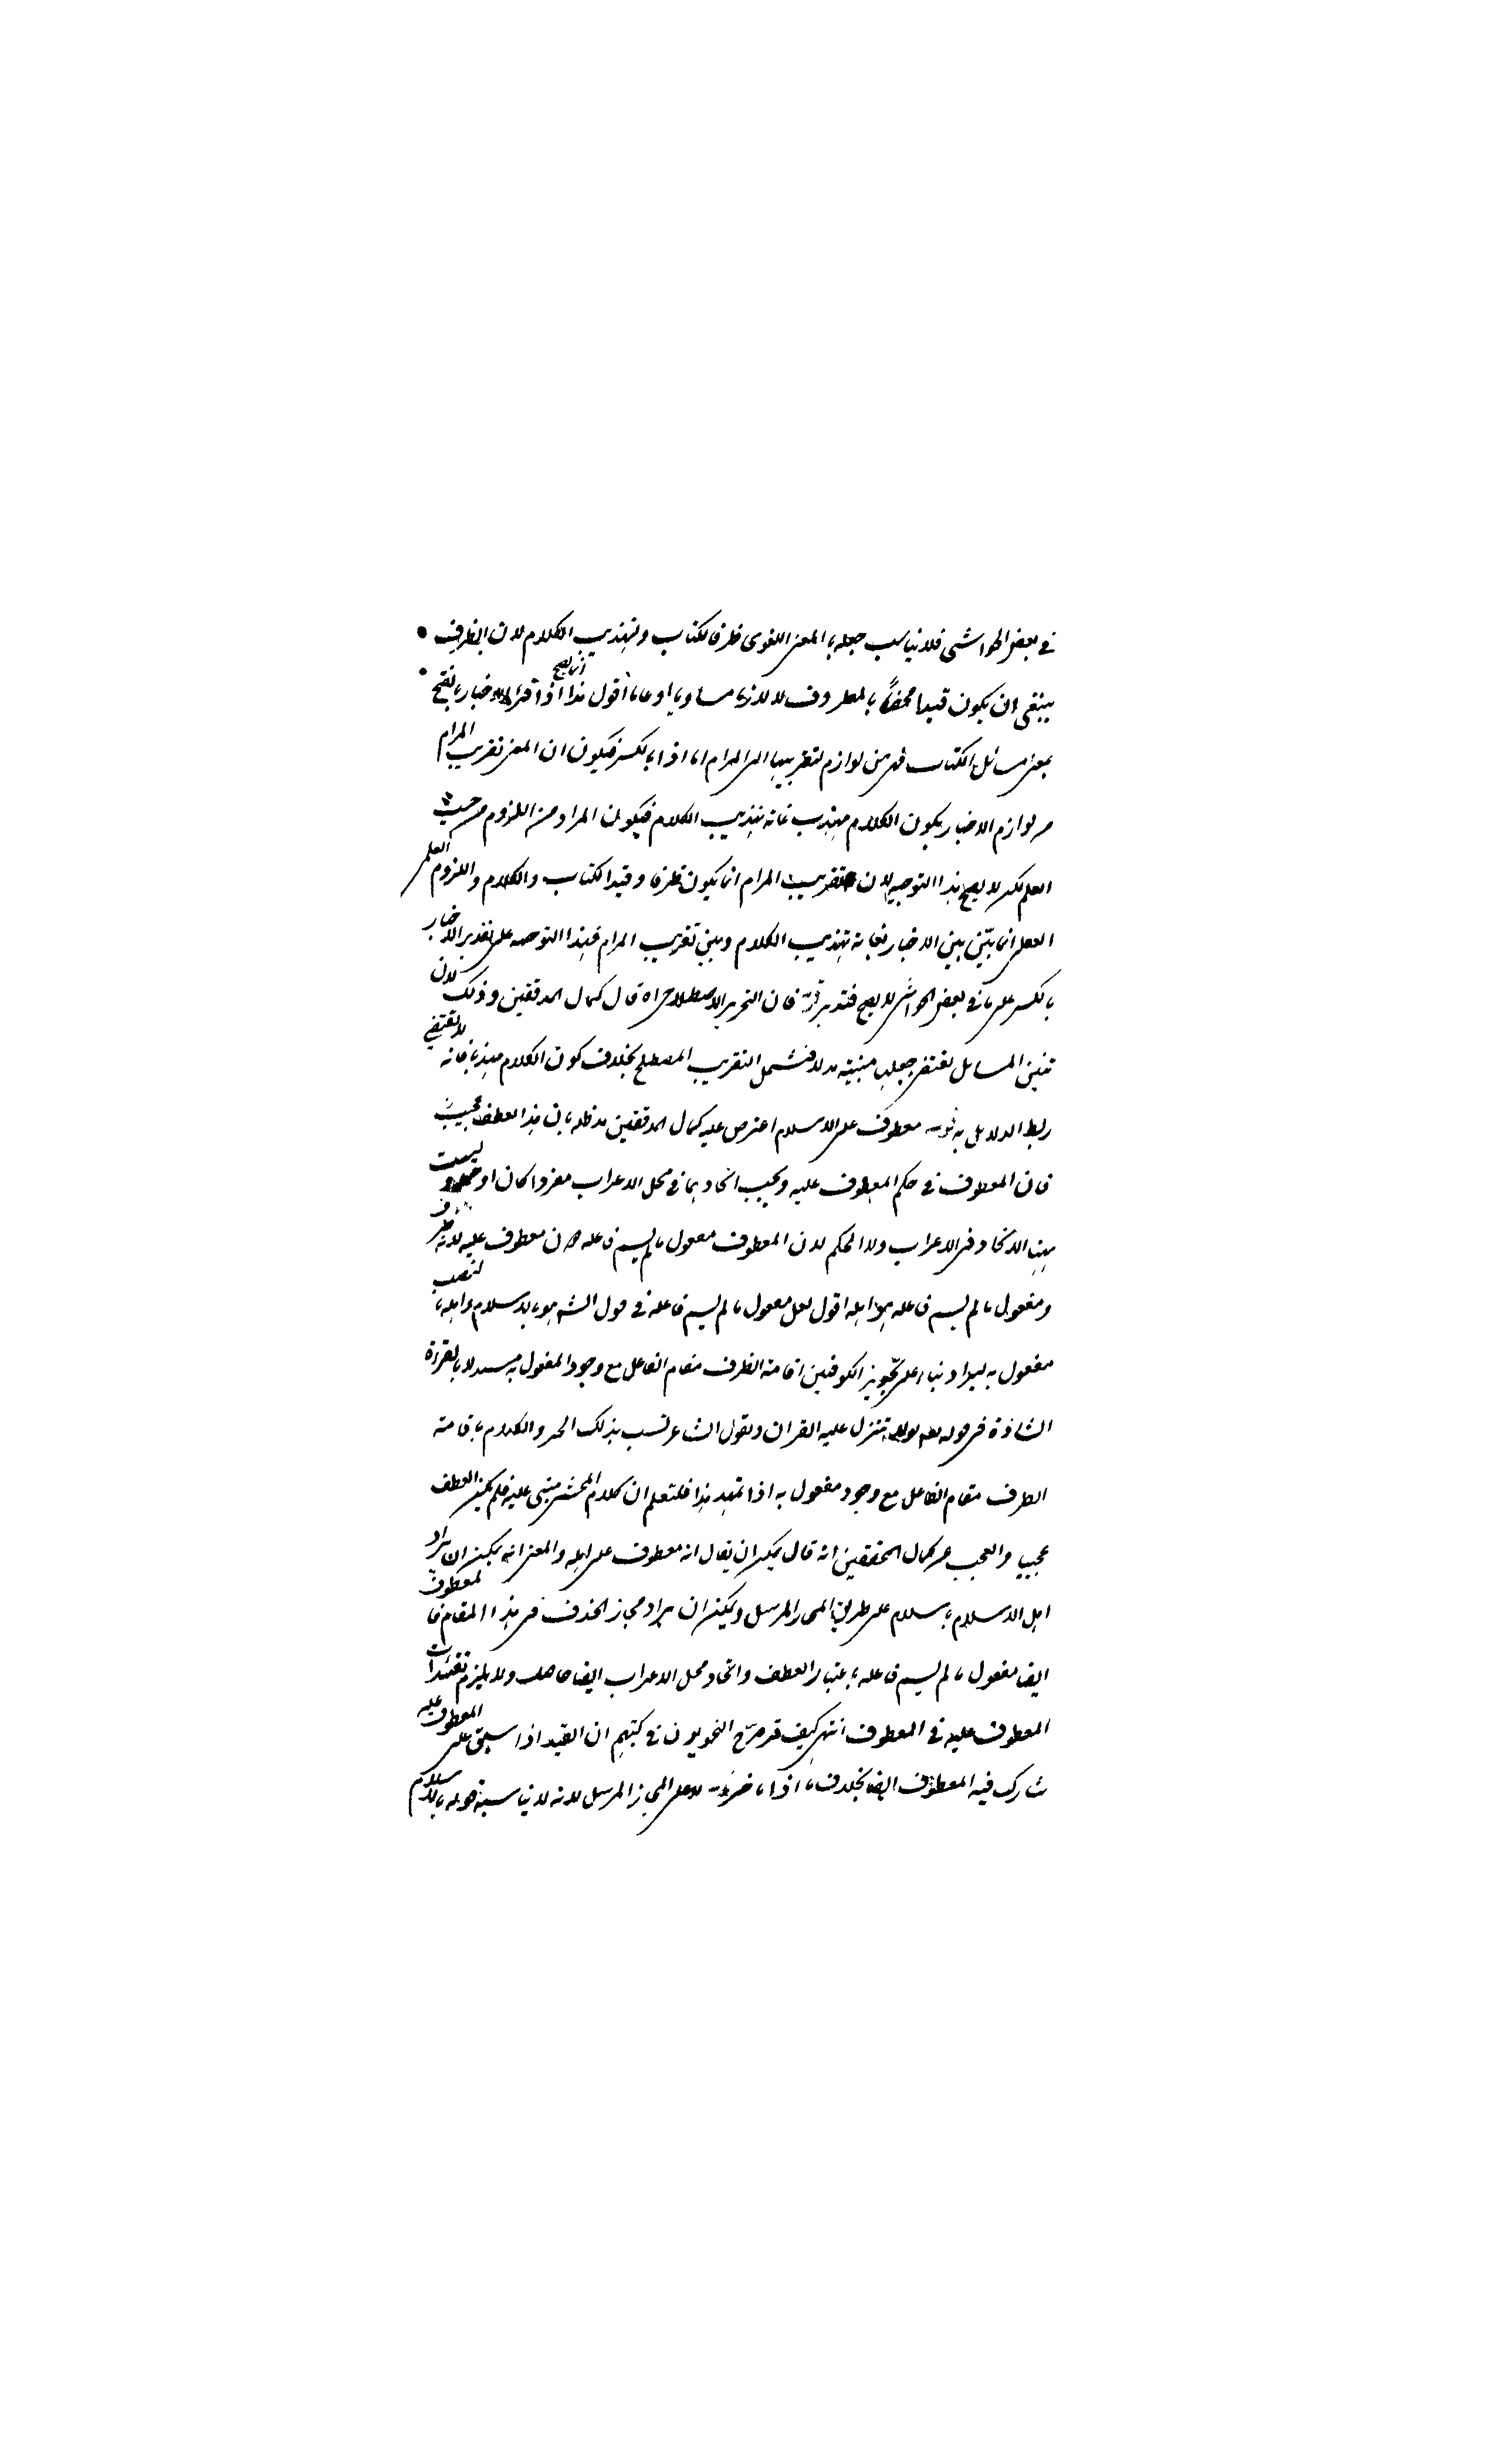 في بعض الحواشي فلا يناسب جعله بالمعنى اللغوي ظرفا لكتاب وتهذيب الكلام لان الظرف
ينبغي ان يكون قيدا مخصصا بالمظروف لا لازما مساويا او عاما اقول هذا انما يصح اذا قرء الاخبار بالفتح
بمعنى مسائل الكتاب فهي من لوازم لتقريبها الى المرام اما اذا بالكسر فيكون ان المعنى تقريب المرام
من لوازم الاخبار بكون الكلام مهذب غاية تهذيب الكلام فيكون المراد من اللزوم من حيث
العلم لكن لا يصح هذا التوجيه لان تقريب المرام انما يكون ظرفا وقيدا لكتاب والكلام واللزوم العلم
العقلي انما بين الاخبار بغاية تهذيب الكلام وبين تقريب المرام فهذا التوجيه على تقدير الاخبار
بالكسر على ما في بعض الحواشي لا يصح فتدبر قوله فان التحرير الاصطلاحي اه قال كمال المدققين وذلك لان
تبيين المسائل يقتضي جعلها مبينة فشمل التقريب المصطلح بخلاف كون الكلام مهذبا فانه لا يقتضي
ربط الدلائل به قوله معطوف على الاسلام اعترض عليه كمال المدققين مد ظله بان هذا العطف عجيب
فان المعطوف في حكم المعطوف عليه ويجب اتحادهما في محل الاعراب مفردا كان او جملة وليست
ههنا الاتحاد في الاعراب ولا الحكم لان المعطوف مفعول ما لم يسم فاعله معطوف عليه لانه ظرف
ومفعول ما لم يسم فاعله اهله اقول لعل مفعول ما لم يسم فاعله في قول الشه هو بالاسلام واهله بالنصب
مفعول به ليراد بناء على تجويز الكوفيين اقامة الظرف مقام الفاعل مع وجود المفعول به مستدلا بالقراءة
الشاذة في قوله تعالى لولا تنزل عليه القران وبقول الشاعر لسب بذلك الجرو الكلام باقامة
الظرف مقام الفاعل مع وجود مفعول به اذا تمهد هذا فلتعلم ان كلام المحشي مبني عليه فلم يكن العطف
عجيبا والعجب من كمال المحققين انه قال يمكن ان يقال انه معطوف على اهله والمعنى انه يمكن ان يراد
اهل الاسلام بالاسلام على طريق المجاز المرسل ويمكن ان يراد مجاز الحذف في هذا المقام فالمعطوف
ايضا مفعول ما لم يسم فاعله باعتبار العطف واتحاد محل الاعراب ايضا حاصل ولا يلزم تقييدات
المعطوف عليه في المعطوف انتهى كيف قد صرح النحويون في كتبهم ان القيد اذا سبق على المعطوف عليه
شارك فيه المعطوف ايضا بخلاف ما اذا تاخر قوله لا على المجاز المرسل لانه لا يناسبه قوله بالاسلام